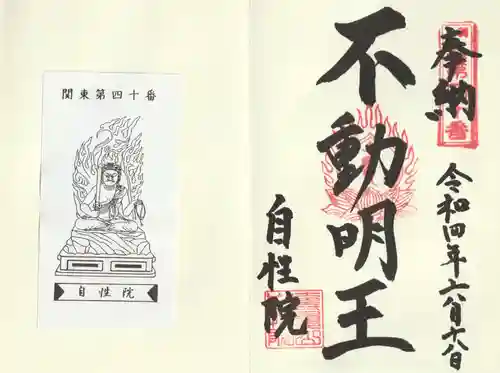 奉納
不動明王
自性院
令和四年六月十八日
関東第四十番
自性院